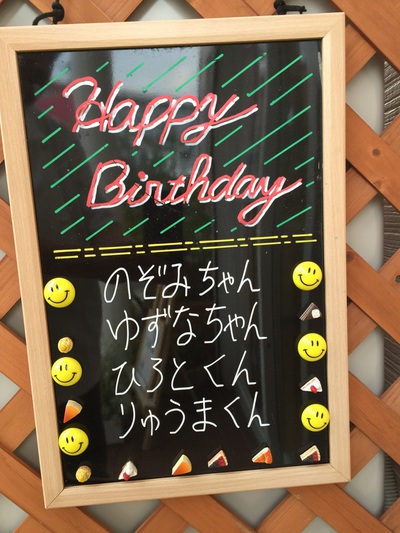 Happy
Birthday
のぞみちゃん
ゆずなちゃん
ひろとくん
りゅうまくん